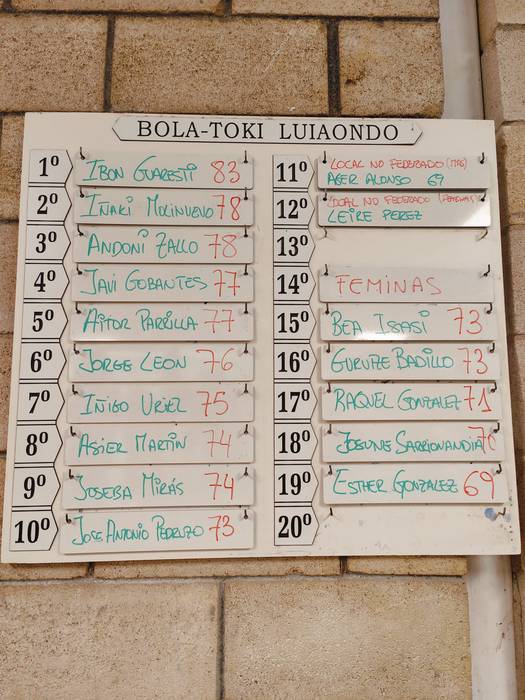 BOLA-TOKI LUIAONDO
1º IBON GUARESTI 83
2º IÑAKI MOLINUEVO 78
3º ANDONI ZALLO 78
4º JAVI GOBANTES 77
5º AITOR PARRILLA 77
6º JORGE LEON 76
7º IÑIGO URIEL 75
8º ASIER MARTIN 74
9º JOSEBA MIRÁS 74
10º JOSE ANTONIO PEDRUZO 73
11º LOCAL NO FEDERADO
AGER ALONSO 69
12º LOCAL NO FEDERADO
LEIRE PEREZ
13º
14º FEMINAS
15º BEA ISASI 73
16º GURUTZE BADILLO 73
17º RAQUEL GONZALEZ 71
18º JOSUNE SARRIONANDIA 70
19º ESTHER GONZALEZ 69
20º